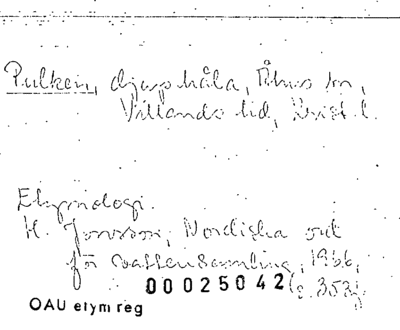 Pulken, djuphåla, Åhus sn,
Villands hd, Krist. l.
Etymologi.
H. Jonsson, Nordiska ord
för vattensamling, 1966,
(s. 353).
00025042
OAU etym reg